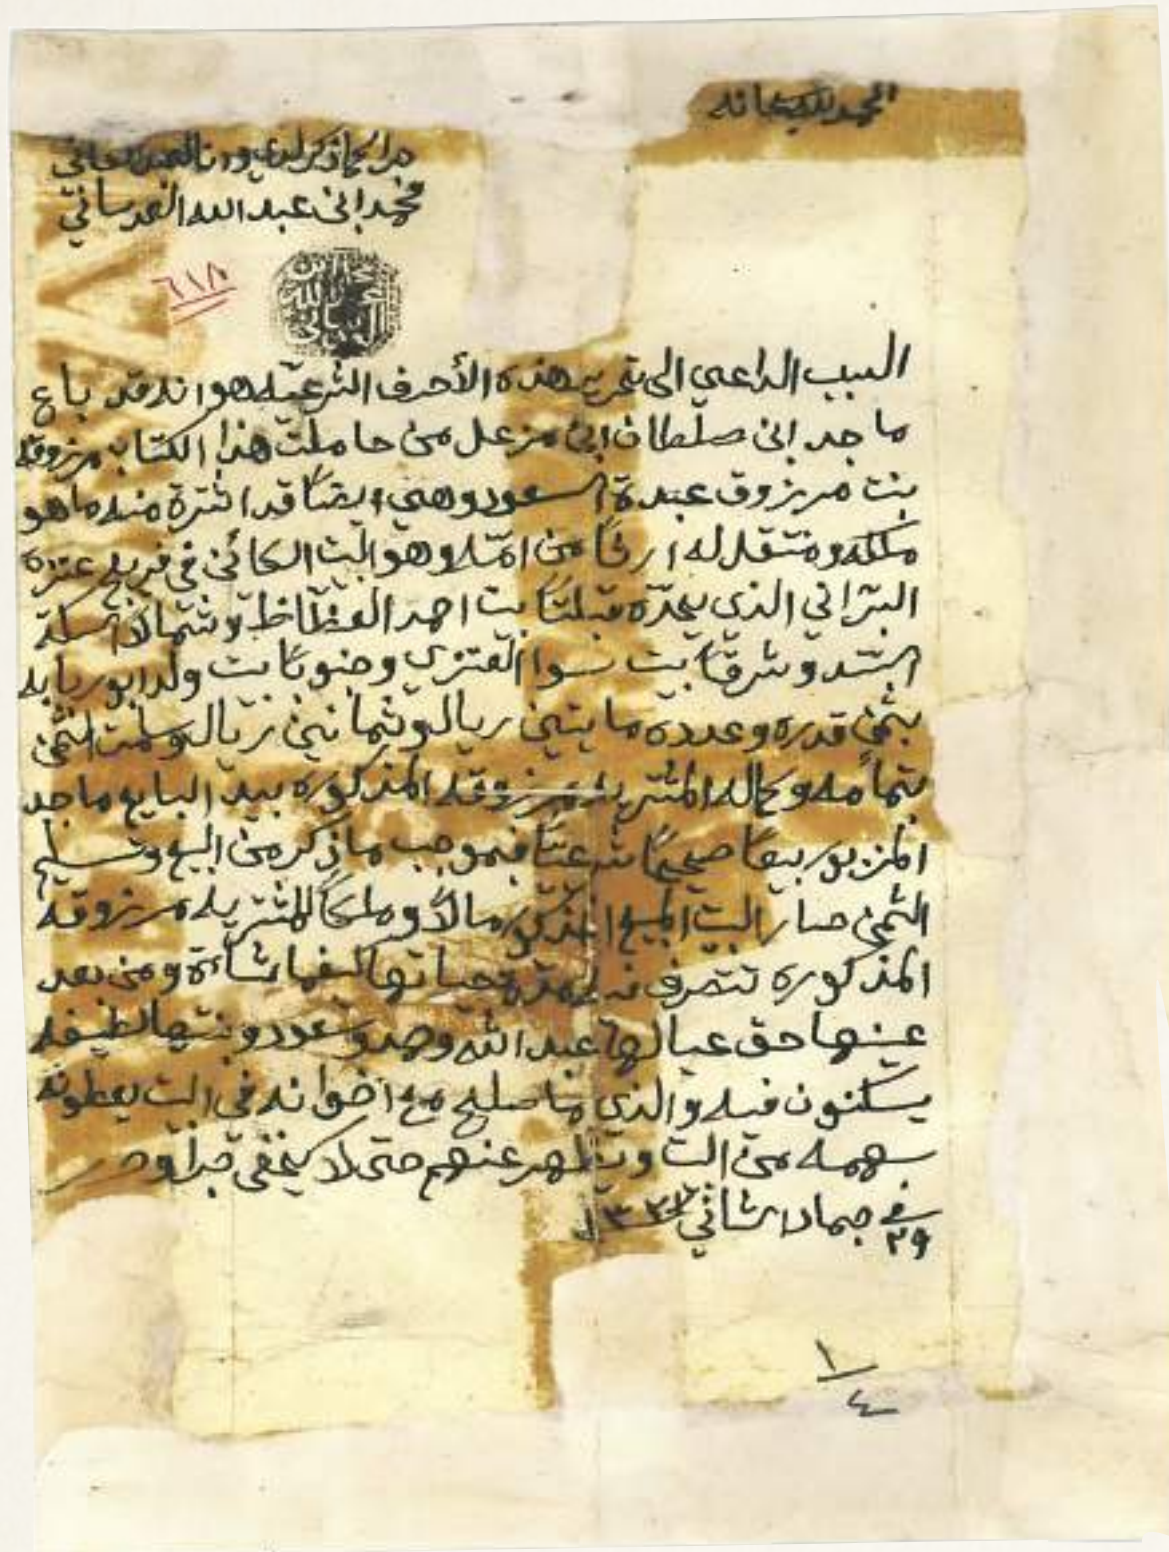 الحمد لله سبحانه
جرا كما ذكر لدي وانا العبد الجاني
محمد ابن عبد الله العدساني
٦١٨
محمد ابن عبد الله العدساني
السبب الداعي الى تحرير هذه الأحرف الشرعيّه هو انه قد باع
ماجد ابن صلطان ابن مزعل من حاملت هذا الكتاب مرزوقه
بنت مرزوق عبدة السعود وهي ايضًا قد اشترة منه ما هو
ملكه ومنتقل له ارثًا من امّه وهو البيت الكائن في فريج عنزه
البرّاني الذي يحدّه قبلتًا بيت احمد وشمالًا
السّد وشرقًا بيت العنزي وجنوبًا بيت ولد ابو ربابه
بثمن قدره وعدده مايتين ريال وثمانين ريال وسلمت الثمن
بتمامه وكماله المشتريه مرزوقه المذكوره بيد البايع ماجد
المزبور بيعًا صحيحًا شرعيًّا فبموجب ما ذكر من البيع وتسليم
الثمن صار البيت المبيع المذكور مالًا وملكًا للمشتريه مرزوقه
المذكوره تتصرف فيه مدة حياتها كيفما شاءة ومن بعد
عينها حق عيالها عبد الله وحمد وسعود وبنتها لطيفه
يسكنون فيه والذي ما صلح مع اخوانه في البيت يعطونه
سهمه من البيت ويظهر عنهم حتى لا يخفى جرا وحرر
في ٢٩ جماد الثاني ١٣٣٢
١/٤